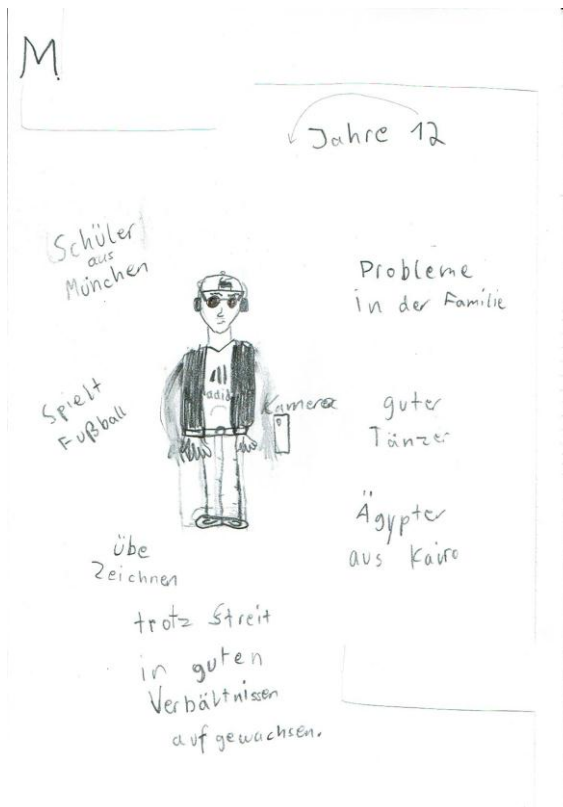 M.
Jahre 12
Schüler
aus
München
Probleme
in der Familie
adid
Kamera
Spielt
Fußball
guter
Tänzer
Ägypter
aus Kairo
übe
Zeichnen
trotz Streit
in guten
Verbältnissen
aufgewachsen.